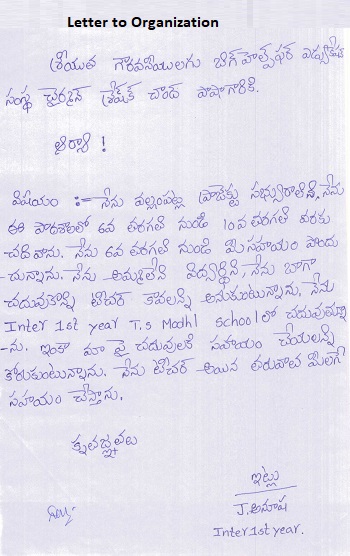 Letter to Organization
శ్రీయుత గౌరవనీయులగు బిగ్ హెల్ప్ ఫర్ ఎడ్యుకేషన్
సంస్థ ఛైర్మన్ షేక్ చాంద్ పాషాగారికి.
ఆర్యా !
విషయం :- నేను పల్లుపట్ల ప్రాజెక్టు సభ్యురాలిని, నేను
ఈ పాఠశాలలో 6వ తరగతి నుండి 10వ తరగతి వరకు
చదివాను. నేను 6వ తరగతి నుండి మీ సహాయం పొందు
-చున్నాను. నేను అమ్మలేని విద్యార్థిని, నేను బాగా
చదువుకొన్ని టీచర్ కావలన్ని అనుకుంటున్నాను, నేను
Inter 1st year T.S Modhl school లో చదువుతున్నా
-ను. ఇంకా మా పై చదువులకి సహాయం చేయలన్ని
కోరుకుంటున్నాను. నేను టీచర్ అయిన తరువాత మీలాగే
సహాయం చేస్తాను.
కృతజ్ఞతలు
ఇట్లు
J. అనూష
Inter 1st year.